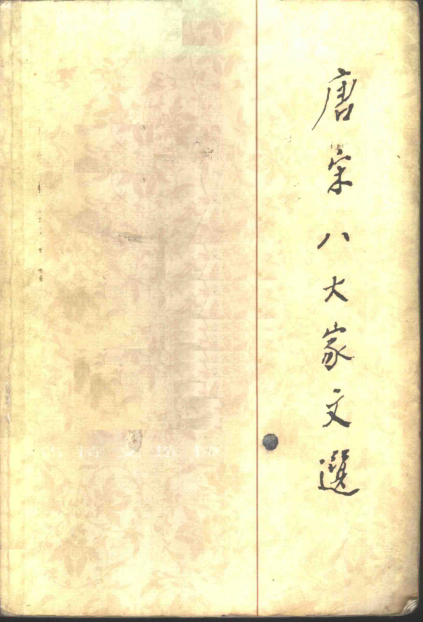 唐宋八大家文選